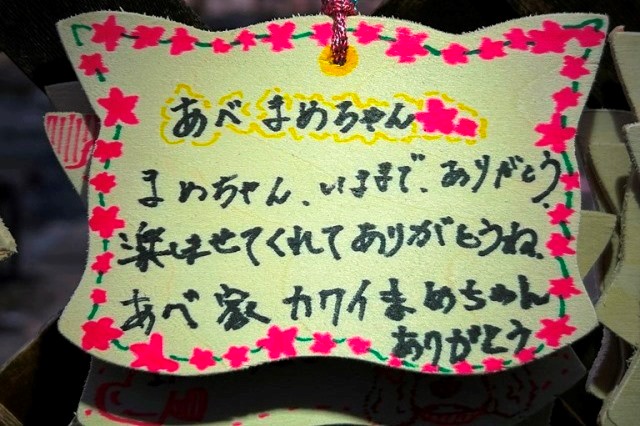 あべ まめちゃん
まめちゃん、いままで、ありがとう
楽しませてくれてありがとうね、
あべ 家 カワイ まめちゃん
ありがとう